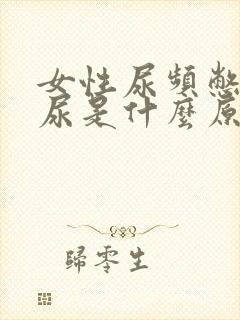 女性尿頻憋
尿是什麼原
歸零生